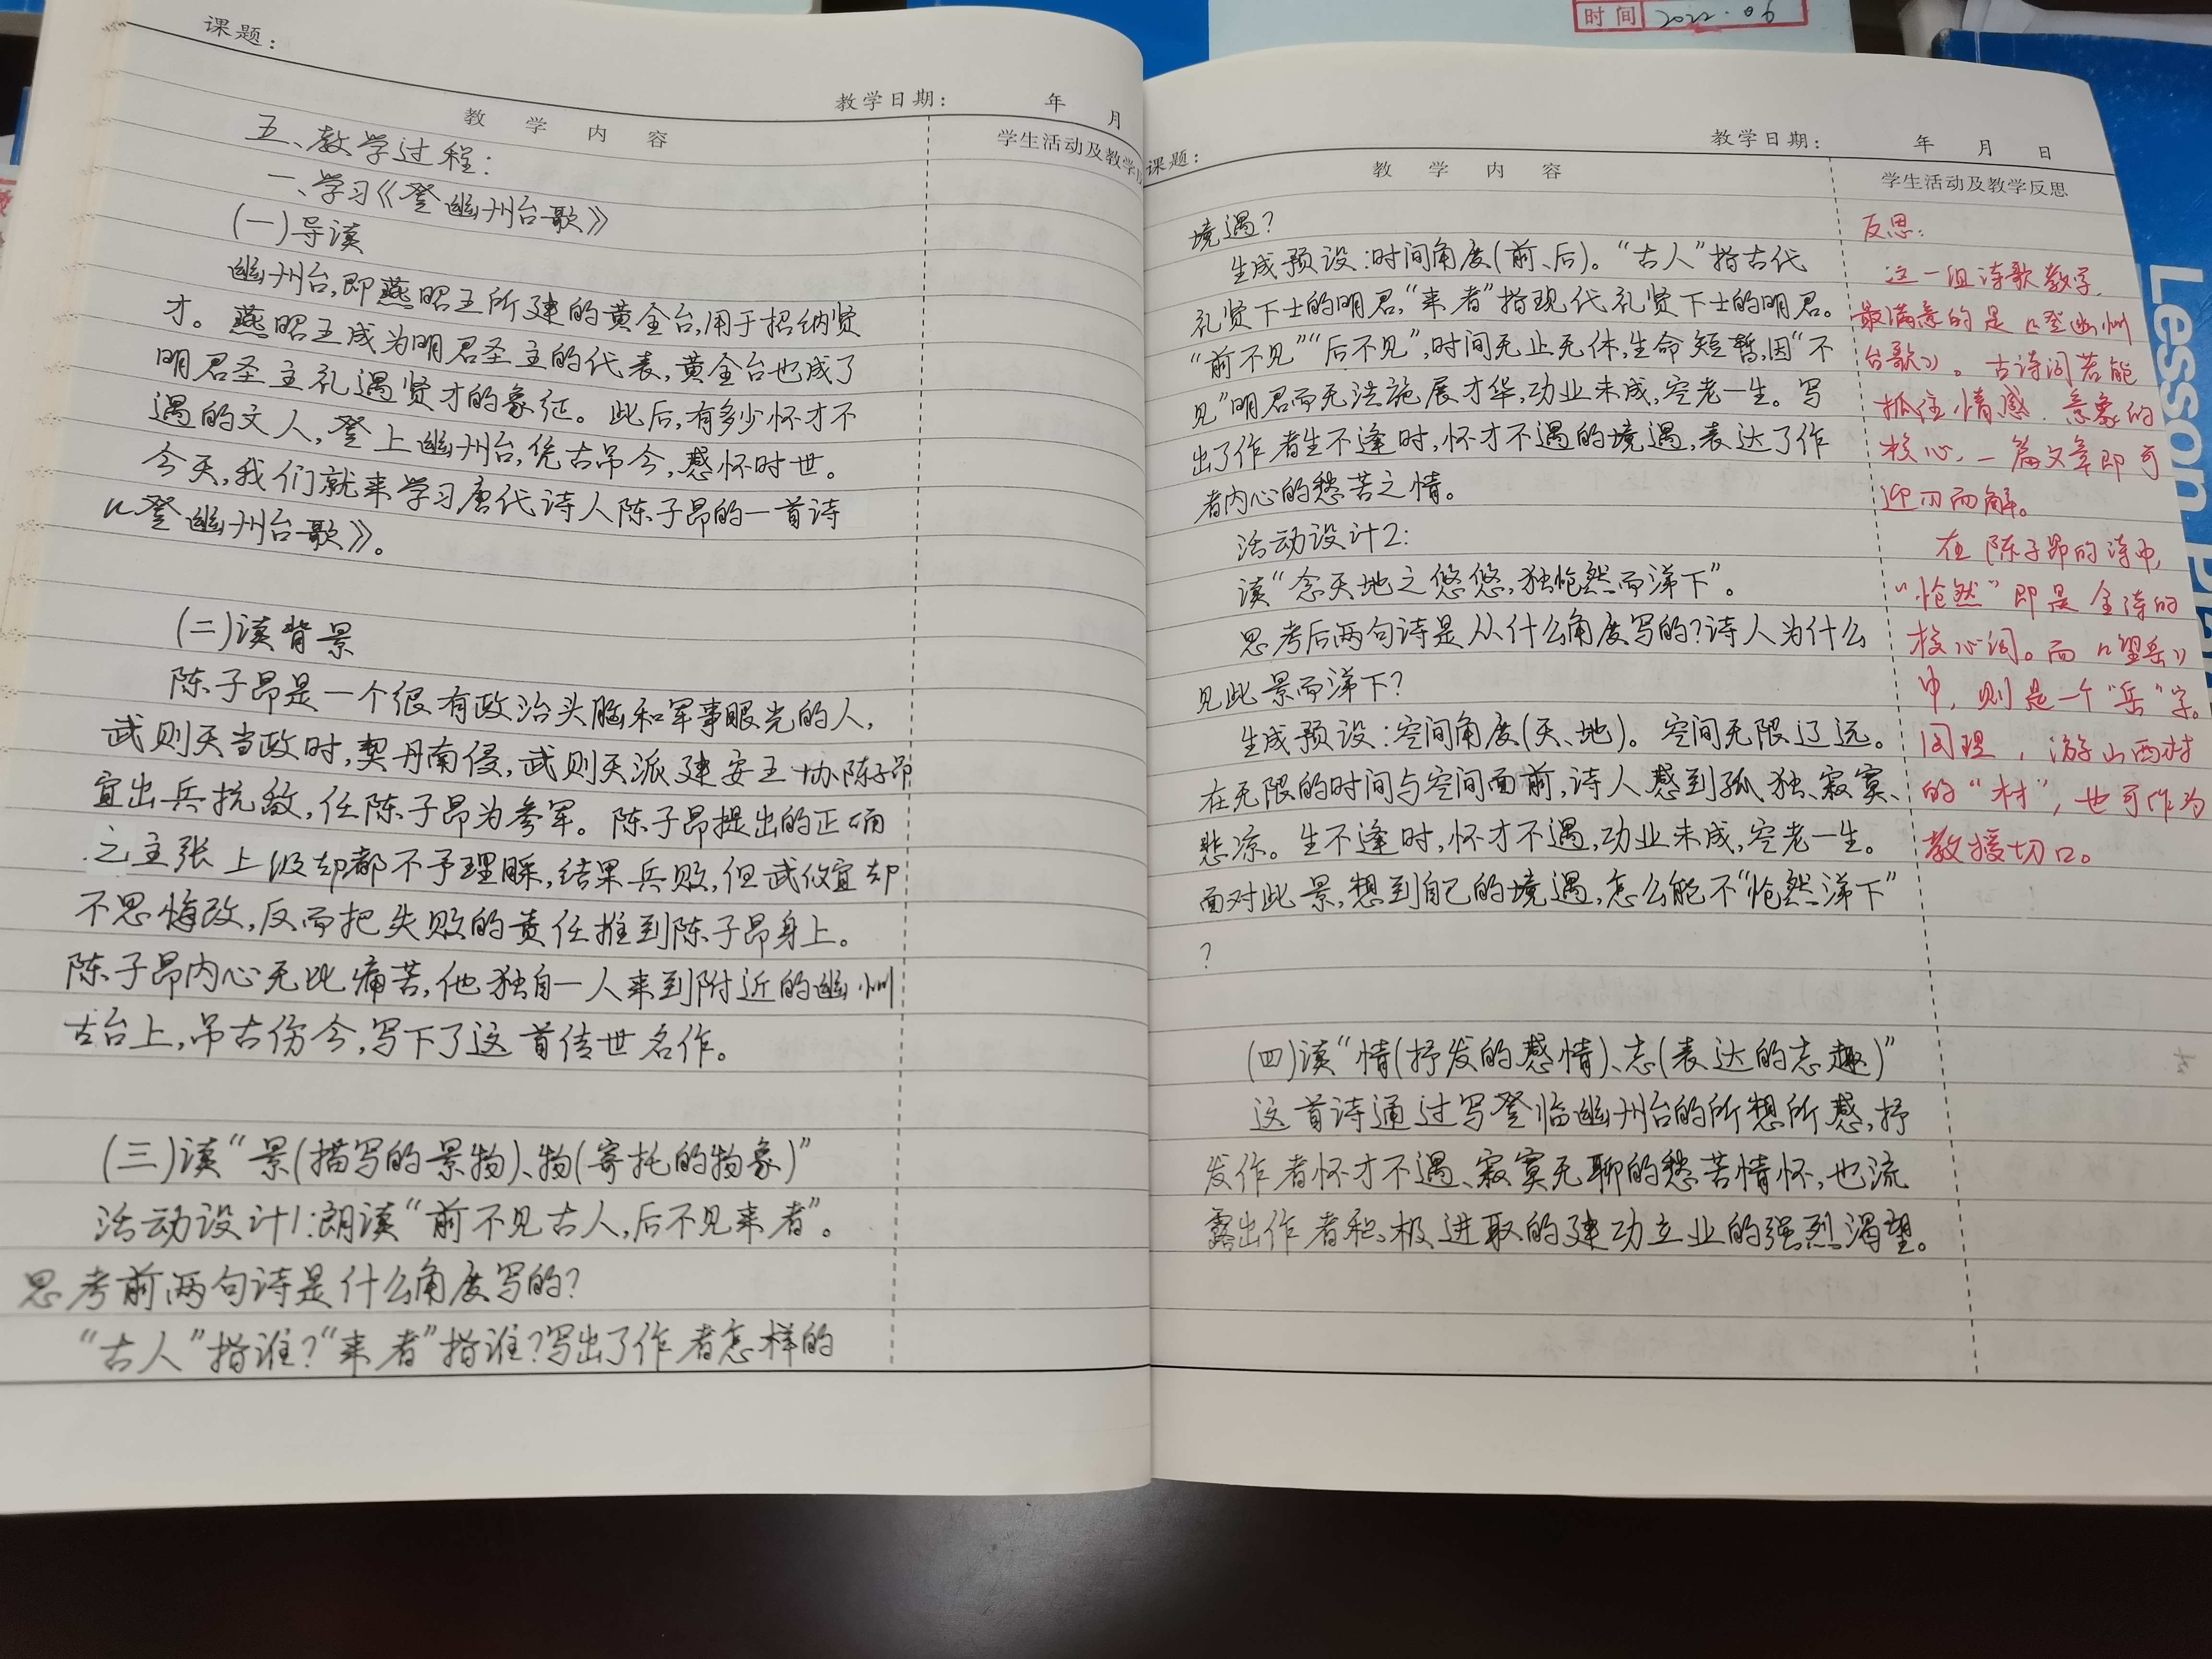 时间 2022.06
课题：
教学日期： 年 月
教 学 内 容
学生活动及教学
五、教学过程：
一、学习《登幽州台歌》
(一)导读
幽州台,即燕昭王所建的黄金台,用于招纳贤
才。燕昭王成为明君圣主的代表,黄金台也成了
明君圣主礼遇贤才的象征。此后,有多少怀才不
遇的文人,登上幽州台,凭古吊今,感怀时世。
今天,我们就来学习唐代诗人陈子昂的一首诗
《登幽州台歌》。
(二)读背景
陈子昂是一个很有政治头脑和军事眼光的人,
武则天当政时,契丹南侵,武则天派建安王协陈子昂
宜出兵抗敌,任陈子昂为参军。陈子昂提出的正确
之主张上级却都不予理睬,结果兵败,但武攸宜却
不思悔改,反而把失败的责任推到陈子昂身上。
陈子昂内心无比痛苦,他独自一人来到附近的幽州
古台上,吊古伤今,写下了这首传世名作。
(三)读“景(描写的景物)、物(寄托的物象)”
活动设计1:朗读“前不见古人,后不见来者”。
思考前两句诗是什么角度写的?
“古人”指谁?“来者”指谁?写出了作者怎样的
课题：
教学日期： 年 月 日
教 学 内 容
学生活动及教学反思
境遇?
生成预设:时间角度(前、后)。“古人”指古代
礼贤下士的明君,“来者”指现代礼贤下士的明君。
“前不见”“后不见”,时间无止无休,生命短暂,因“不
见”明君而无法施展才华,功业未成,空老一生。写
出了作者生不逢时,怀才不遇的境遇,表达了作
者内心的愁苦之情。
活动设计2:
读“念天地之悠悠,独怆然而涕下”。
思考后两句诗是从什么角度写的?诗人为什么
见此景而涕下?
生成预设:空间角度(天、地)。空间无限辽远。
在无限的时间与空间面前,诗人感到孤独、寂寞、
悲凉。生不逢时,怀才不遇,功业未成,空老一生。
面对此景,想到自己的境遇,怎么能不“怆然涕下”
?
(四)读“情(抒发的感情)、志(表达的志趣)”
这首诗通过写登临幽州台的所想所感,抒
发作者怀才不遇、寂寞无聊的愁苦情怀,也流
露出作者积极进取的建功立业的强烈渴望。
反思:
这一组诗歌教学,
最满意的是《登幽州
台歌》。古诗词若能
抓住情感、意象的
核心,一篇文章即可
迎刃而解。
在陈子昂的诗中,
“怆然”即是全诗的
核心词。而《望岳》
中,则是一个“岳”字。
同理,游山西村
的“村”,也可作为
教授切口。
Lesson Pla